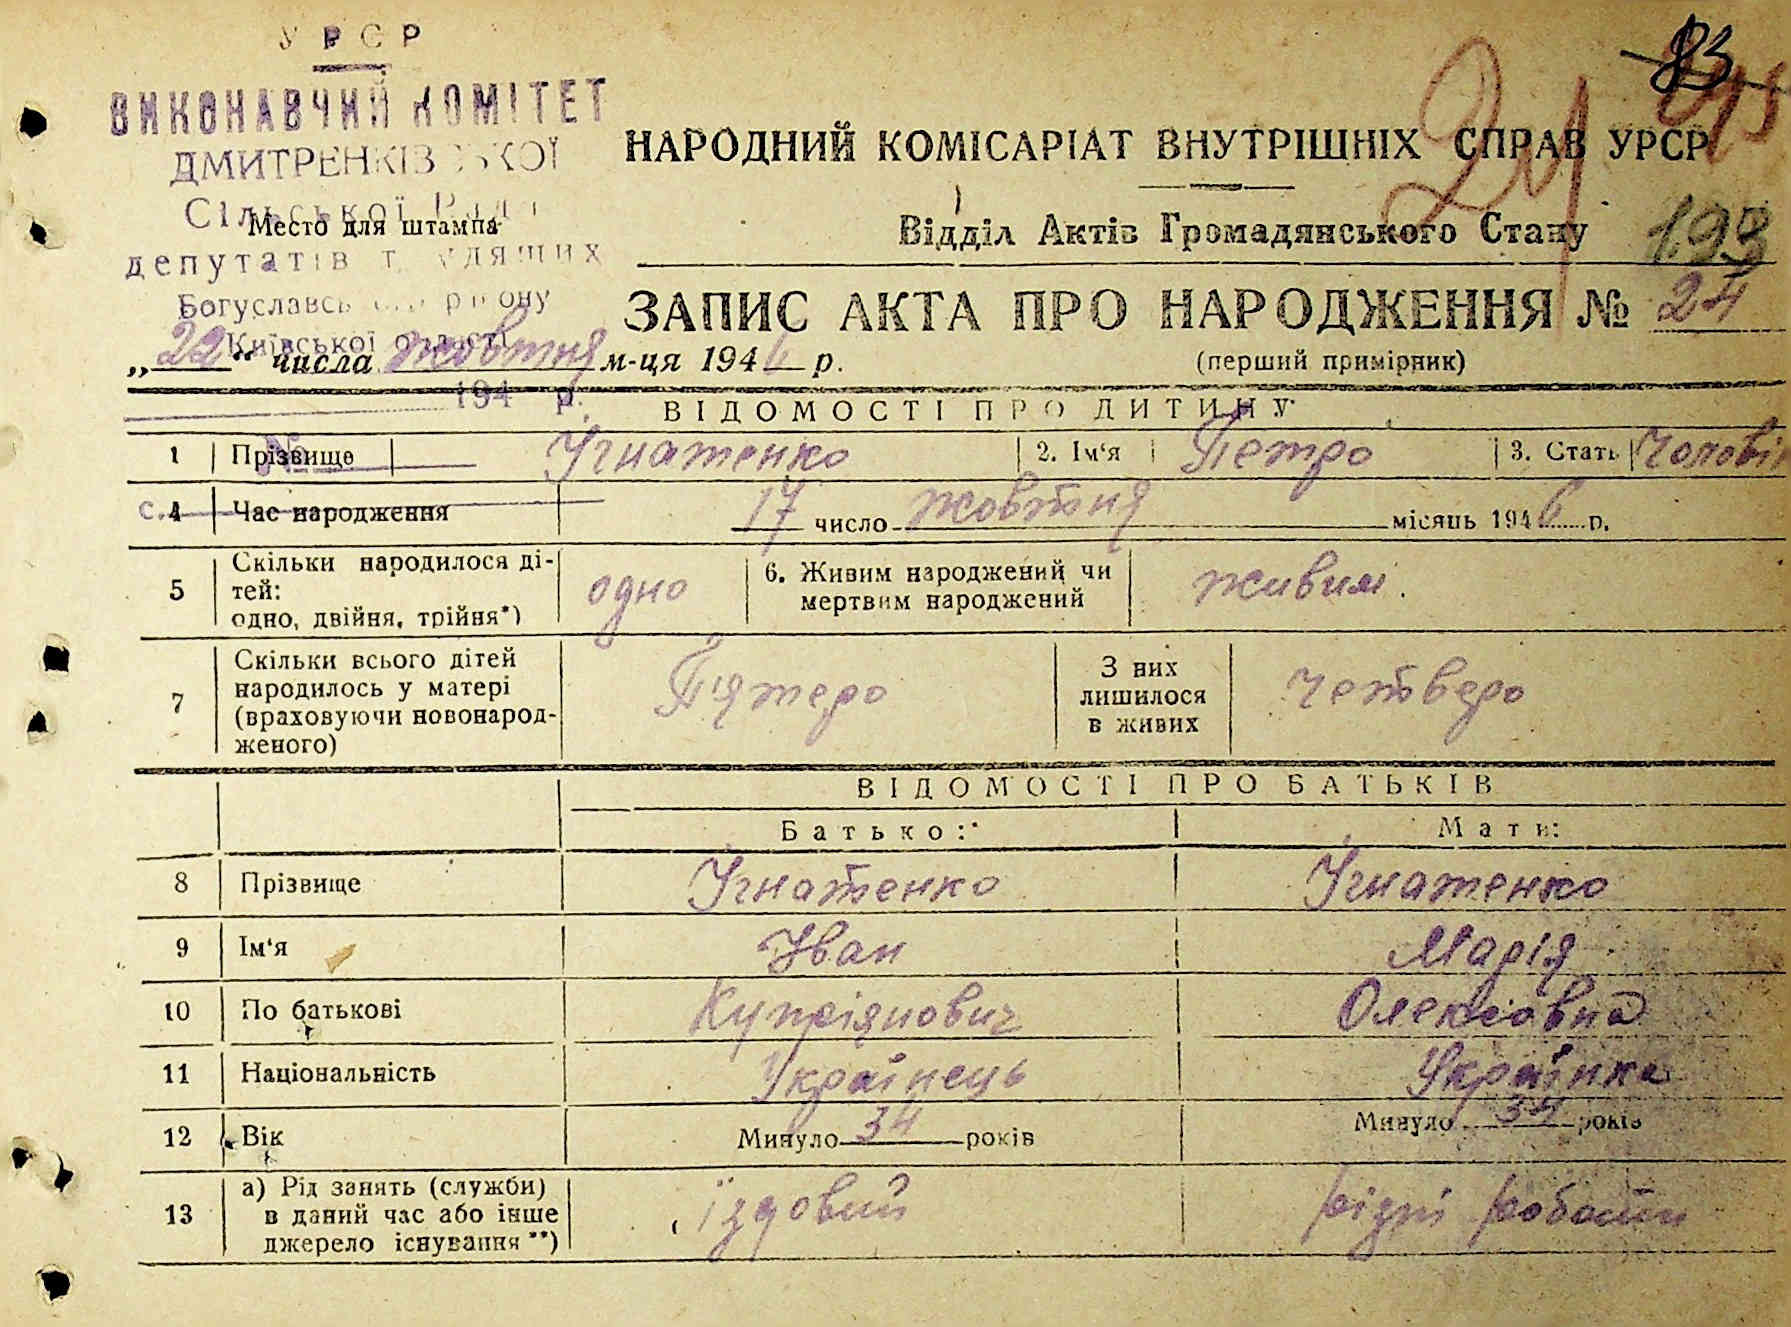 УРСР
ВИКОНАВЧИЙ КОМІТЕТ
ДМИТРЕНКІВСЬКОЇ
Сільської Ради
депутатів трудящих
Богуславсь району
Київської області
194 р.
№
с.
Место для штампа
83
24
193
НАРОДНИЙ КОМІСАРІАТ ВНУТРІШНІХ СПРАВ УРСР
Відділ Актів Громадянського Стану
ЗАПИС АКТА ПРО НАРОДЖЕННЯ № 24
„22“ числа жовтня м-ця 1946 р.
(перший примірник)
ВІДОМОСТІ ПРО ДИТИНУ
1 Прізвище Ігнатенко 2. Ім‘я Петро 3. Стать Чолові
4 Час народження 17 число жовтня місяць 1946 р.
5 Скільки народилося ді-
тей:
одно, двійня, трійня*) одно 6. Живим народжений чи
мертвим народжений живим.
7 Скільки всього дітей
народилось у матері
(враховуючи новонарод-
женого) П'ятеро З них
лишилося
в живих четверо
ВІДОМОСТІ ПРО БАТЬКІВ
Батько: Мати:
8 Прізвище Ігнатенко Ігнатенко
9 Ім‘я Іван Марія
10 По батькові Купріянович Олексіовна
11 Національність Українець Українка
12 Вік Минуло 34 років Минуло 34 років
13 а) Рід занять (служби)
в даний час або інше
джерело існування**) їздовий різні роботи